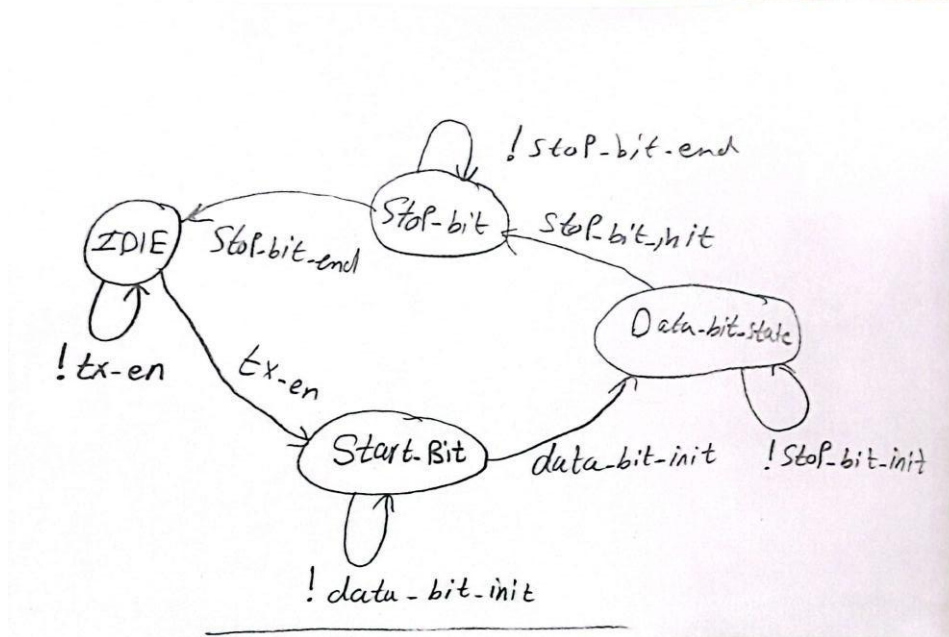 ! stop-bit-end
Stop-bit
IDIE
Stop-bit-end
stop-bit-init
Data-bit-state
! tx-en
tx-en
Start-Bit
data-bit-init
! Stop-bit-init
! data-bit-init